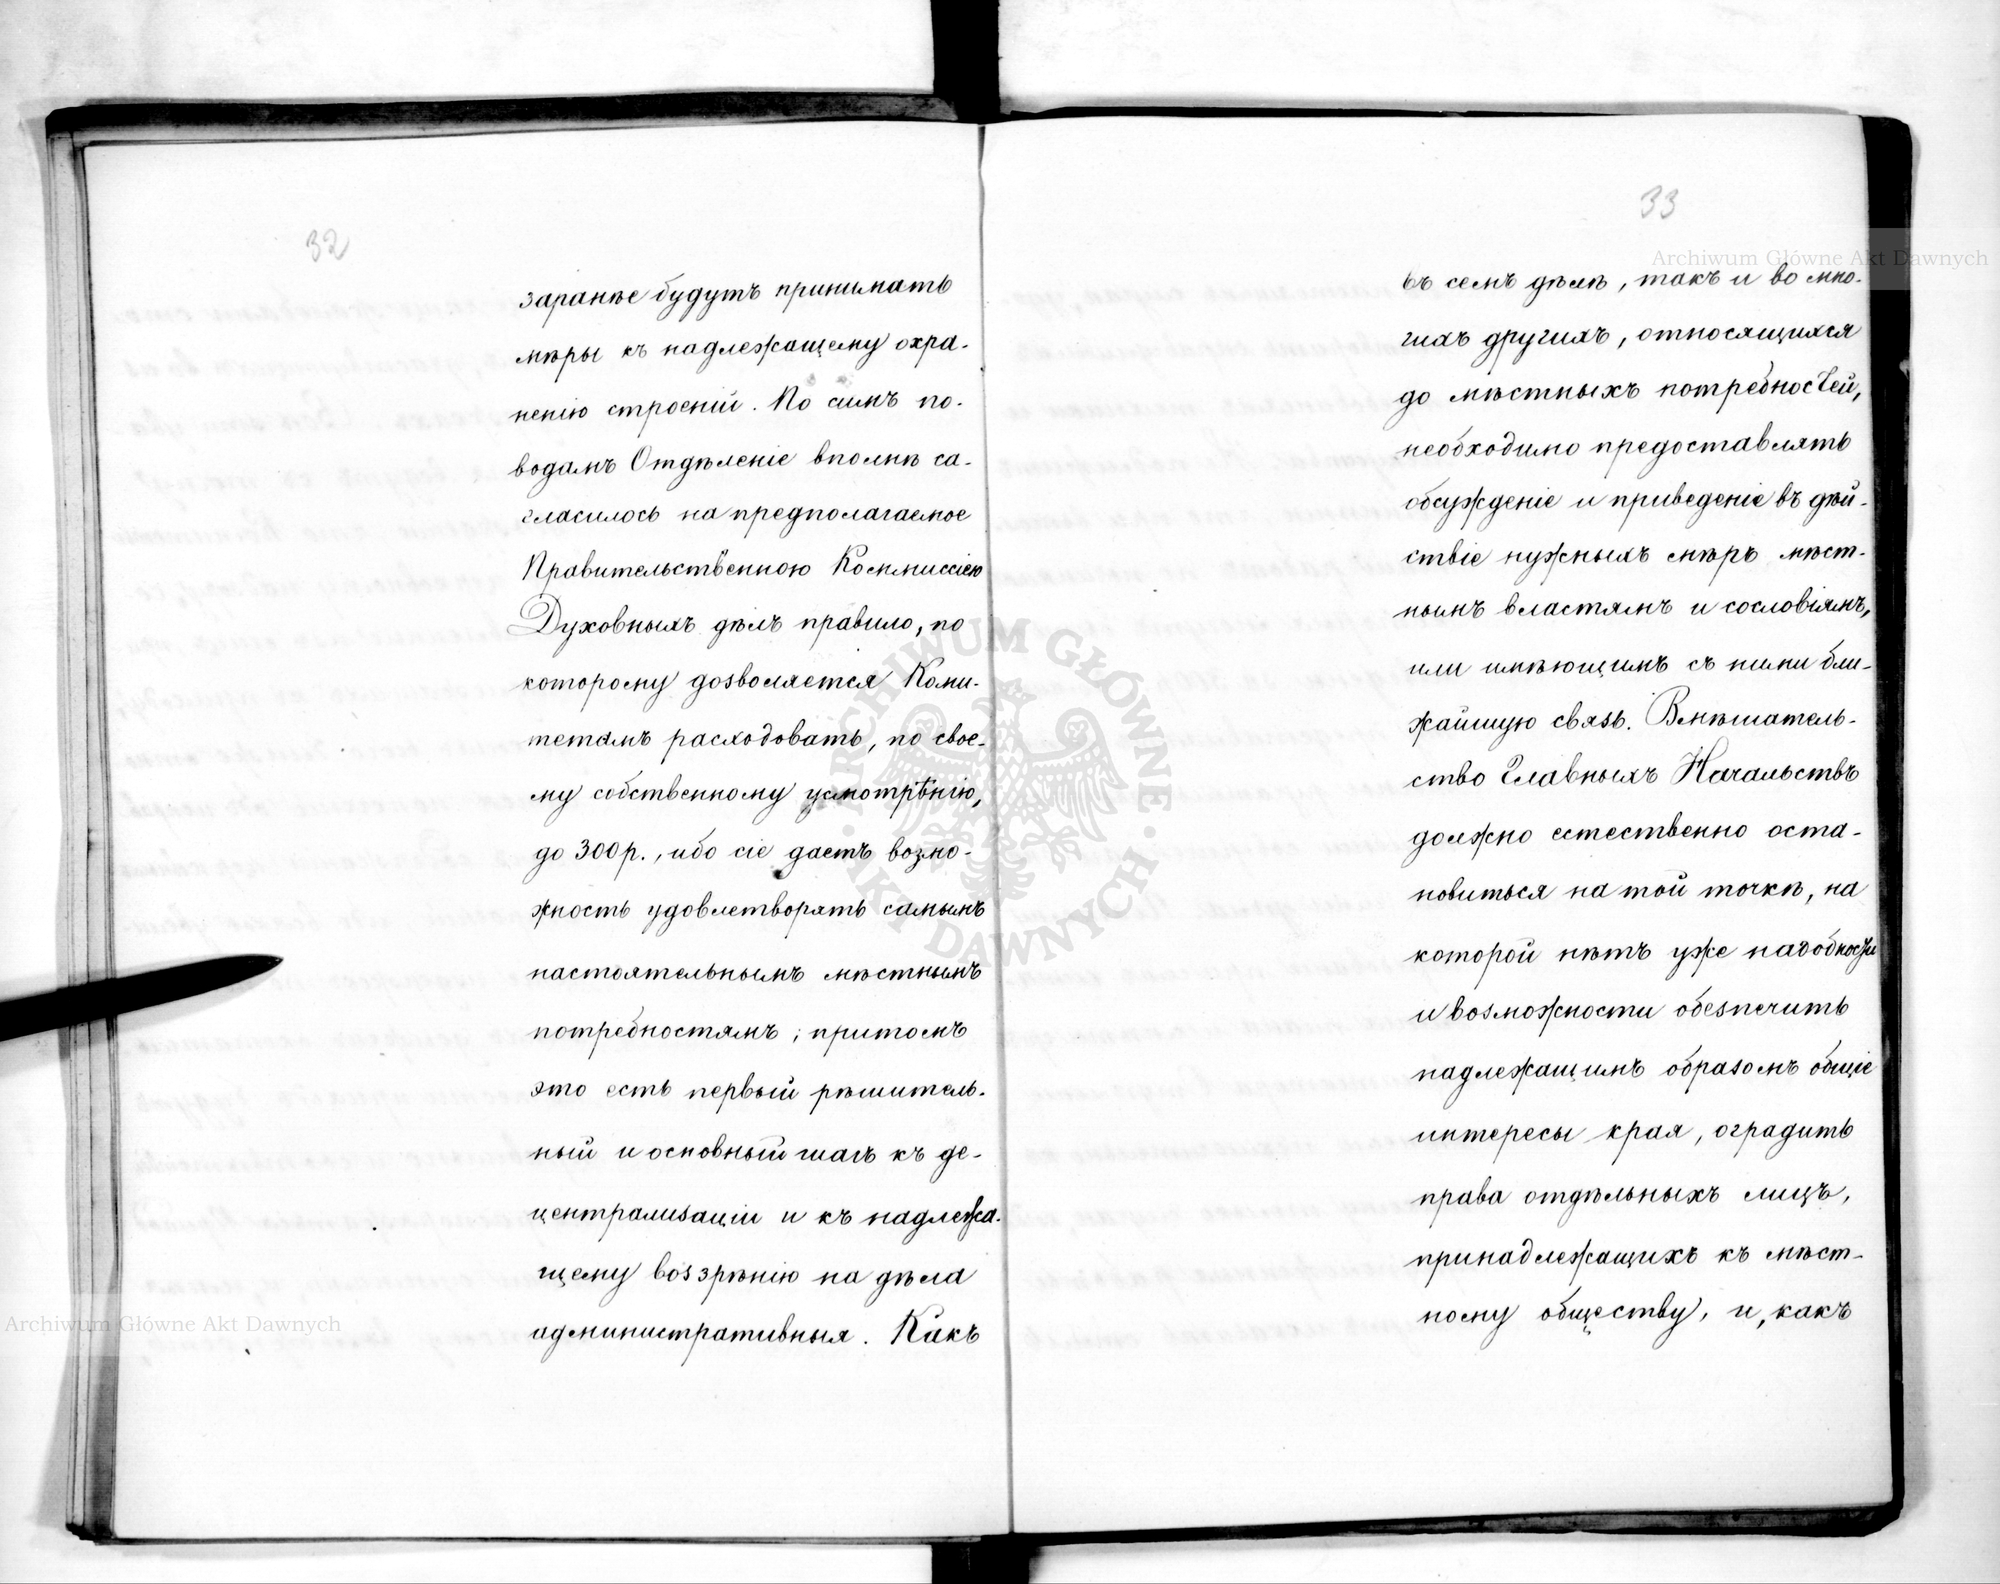 32
заранѣе будутъ принимать
мѣры къ надлежащему охра-
ненію строеній. По симъ по-
водамъ Отдѣленіе вполнѣ со-
гласилось на предполагаемое
Правительственною Коммиссіею
Духовныхъ дѣлъ правило, по
которому дозволяется Коми-
тетамъ расходовать, по свое-
му собственному усмотрѣнію,
до 300 р., ибо сіе даетъ возмо-
жность удовлетворять самымъ
настоятельнымъ мѣстнымъ
потребностямъ; притомъ
это есть первый рѣшитель-
ный и основный шагъ къ де-
централизаціи и къ надлежа-
щему воззрѣнію на дѣла
административныя. Какъ
33
въ семъ дѣлѣ, такъ и во мно-
гихъ другихъ, относящихся
до мѣстныхъ потребностей,
необходимо предоставлять
обсужденіе и приведеніе въ дѣй-
ствіе нужныхъ мѣръ мѣст-
нымъ властямъ и сословіямъ,
или имѣющимъ съ ними бли-
жайшую связь. Вмѣшатель-
ство Главныхъ Начальствъ
должно естественно оста-
новиться на той точкѣ, на
которой нѣтъ уже надобности
и возможности обезпечить
надлежащимъ образомъ общіе
интересы края, оградить
права отдѣльныхъ лицъ,
принадлежащихъ къ мѣст-
ному обществу, и, какъ
Archiwum Główne Akt Dawnych
Archiwum Główne Akt Dawnych
· ARCHIWUM GŁÓWNE · AKT DAWNYCH